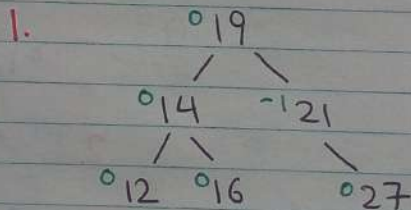 1. 0 19
0 14 -1 21
0 12 0 16 0 27